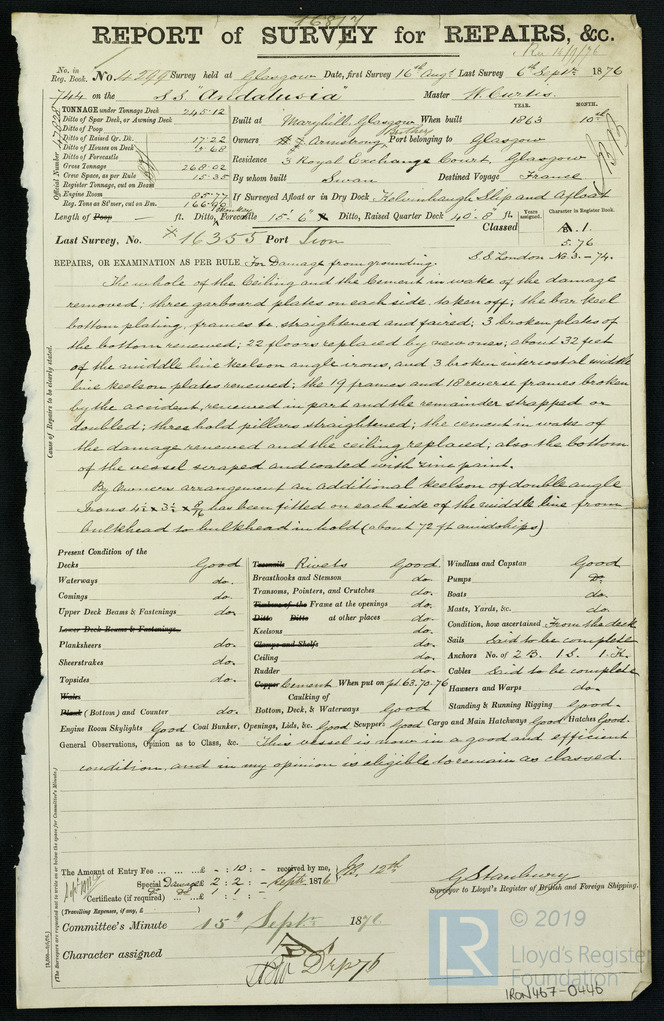 REPORT of SURVEY for REPAIRS, &c.
No. in Reg. Book. No. 4299 Survey held at Glasgow Date, first Survey 16th Augt Last Survey 6th Septr 1876
744 on the S.S. "Andalusia" Master W. Curtis
TONNAGE under Tonnage Deck 245.12
Ditto of Spar Deck, or Awning Deck
Ditto of Poop
Ditto of Raised Qr. Dk. 17.22
Ditto of Houses on Deck 5.68
Ditto of Forecastle
Gross Tonnage 268.02
Crew Space, as per Rule 15.35
Register Tonnage, cut on Beam
Engine Room 85.77
Reg. Tons as St'mer, cut on Bm. 166.90
YEAR. MONTH.
Built at Maryhill, Glasgow When built 1863 10th
Owners Armstrong Port belonging to Glasgow
Residence 3 Royal Exchange Court, Glasgow
By whom built Swan Destined Voyage France
If Surveyed Afloat or in Dry Dock Kelvinhaugh Slip and Afloat
Length of Poop ft. Ditto, Forecastle 15'.6" Ditto, Raised Quarter Deck 40.8 ft. Years assigned. Character in Register Book.
Classed A.1.
5.76
Last Survey, No. 16355 Port Iron
S.S. London No. 3.-74.
REPAIRS, OR EXAMINATION AS PER RULE For Damage from grounding.
The whole of the Ceiling and the Cement in wake of the damage
removed; three garboard plates on each side taken off; the bar keel
bottom plating, frames &c. straightened and faired; 3 broken plates of
the bottom renewed; 22 floors replaced by new ones; about 32 feet
of the middle line keelson angle irons, and 3 broken intercostal middle
line keelson plates renewed; the 19 frames and 18 reverse frames broken
by the accident, renewed in part and the remainder strapped or
doubled; three hold pillars straightened; the cement in wake of
the damage renewed and the ceiling replaced; also the bottom
of the vessel scraped and coated with zinc paint.
By Owners arrangement an additional keelson of double angle
irons 4½ x 3½ x 8/16 has been fitted on each side of the middle line from
bulkhead to bulkhead in hold (about 72 ft amidships)
Cause of Repairs to be clearly stated.
Present Condition of the
Decks Good
Waterways do.
Comings do.
Upper Deck Beams & Fastenings do.
Lower Deck Beams & Fastenings
Planksheers do.
Sheerstrakes do.
Topsides do.
Wales
Plank (Bottom) and Counter do.
Treenails Rivets Good
Breasthooks and Stemson do.
Transoms, Pointers, and Crutches do.
Timbers of the Frame at the openings do.
Ditto Ditto at other places do.
Keelsons do.
Clamps and Shelfs
Ceiling do.
Rudder do.
Copper Cement When put on pt 63.70.76
Caulking of
Bottom, Deck, & Waterways Good
Windlass and Capstan Good
Pumps Do.
Boats do.
Masts, Yards, &c. do.
Condition, how ascertained From the deck
Sails Said to be complete
Anchors No. of 2 B. 1 S. 1 K.
Cables Said to be complete
Hawsers and Warps do.
Standing & Running Rigging Good.
Engine Room Skylights Good Coal Bunker, Openings, Lids, &c. Good Scuppers Good Cargo and Main Hatchways Good Hatches Good.
General Observations, Opinion as to Class, &c. This vessel is now in a good and efficient
condition, and in my opinion is eligible to remain as classed.
The Amount of Entry Fee ... ... £ - : 10 : - received by me,
Special Damage £ 2 : 2 : - Septr 1876
Certificate (if required) ... £ 1 : 1 : -
(Travelling Expenses, if any, £ )
G Stanbury
Surveyor to Lloyd's Register of British and Foreign Shipping.
Committee's Minute 15th Septr 1876
Character assigned
© 2019
LR
Lloyd's Register
Foundation
IRON467-0446